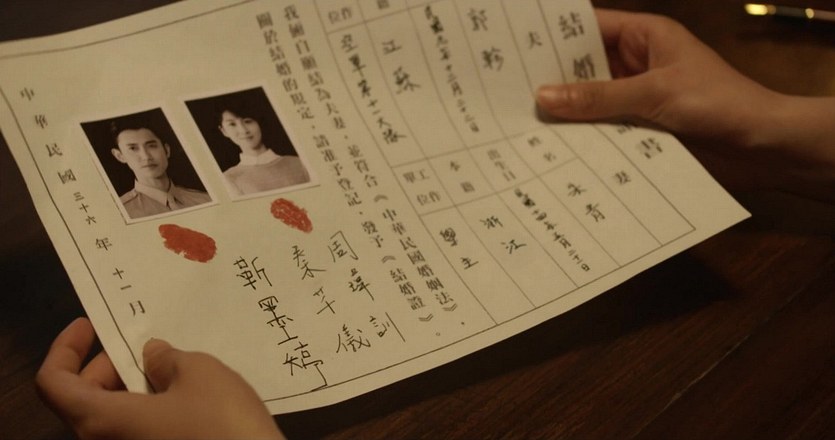 結婚 書
夫
郭軫
民國九年十二月二十二日
江蘇
空軍第十一大隊
妻
姓名
朱青
出生日
本籍
浙江
單位
工作
學生
我倆自願結為夫妻，並符合《中華民國婚姻法》
關於結婚的規定，請准予登記，發予《結婚證》。
周瑋訓
秦芊儀
靳墨婷
中華民國三十六年十一月